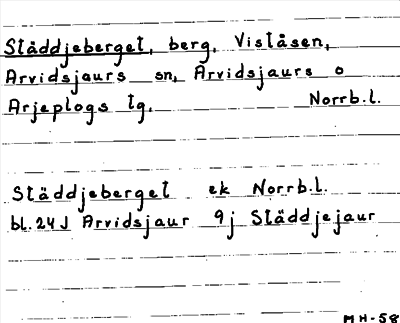 Städdjeberget, berg, Viståsen,
Arvidsjaurs sn, Arvidsjaurs o
Arjeplogs tg. Norrb.l.
Städdjeberget ek Norrb.l.
bl. 24J Arvidsjaur 9j Städdjejaur
MH-58